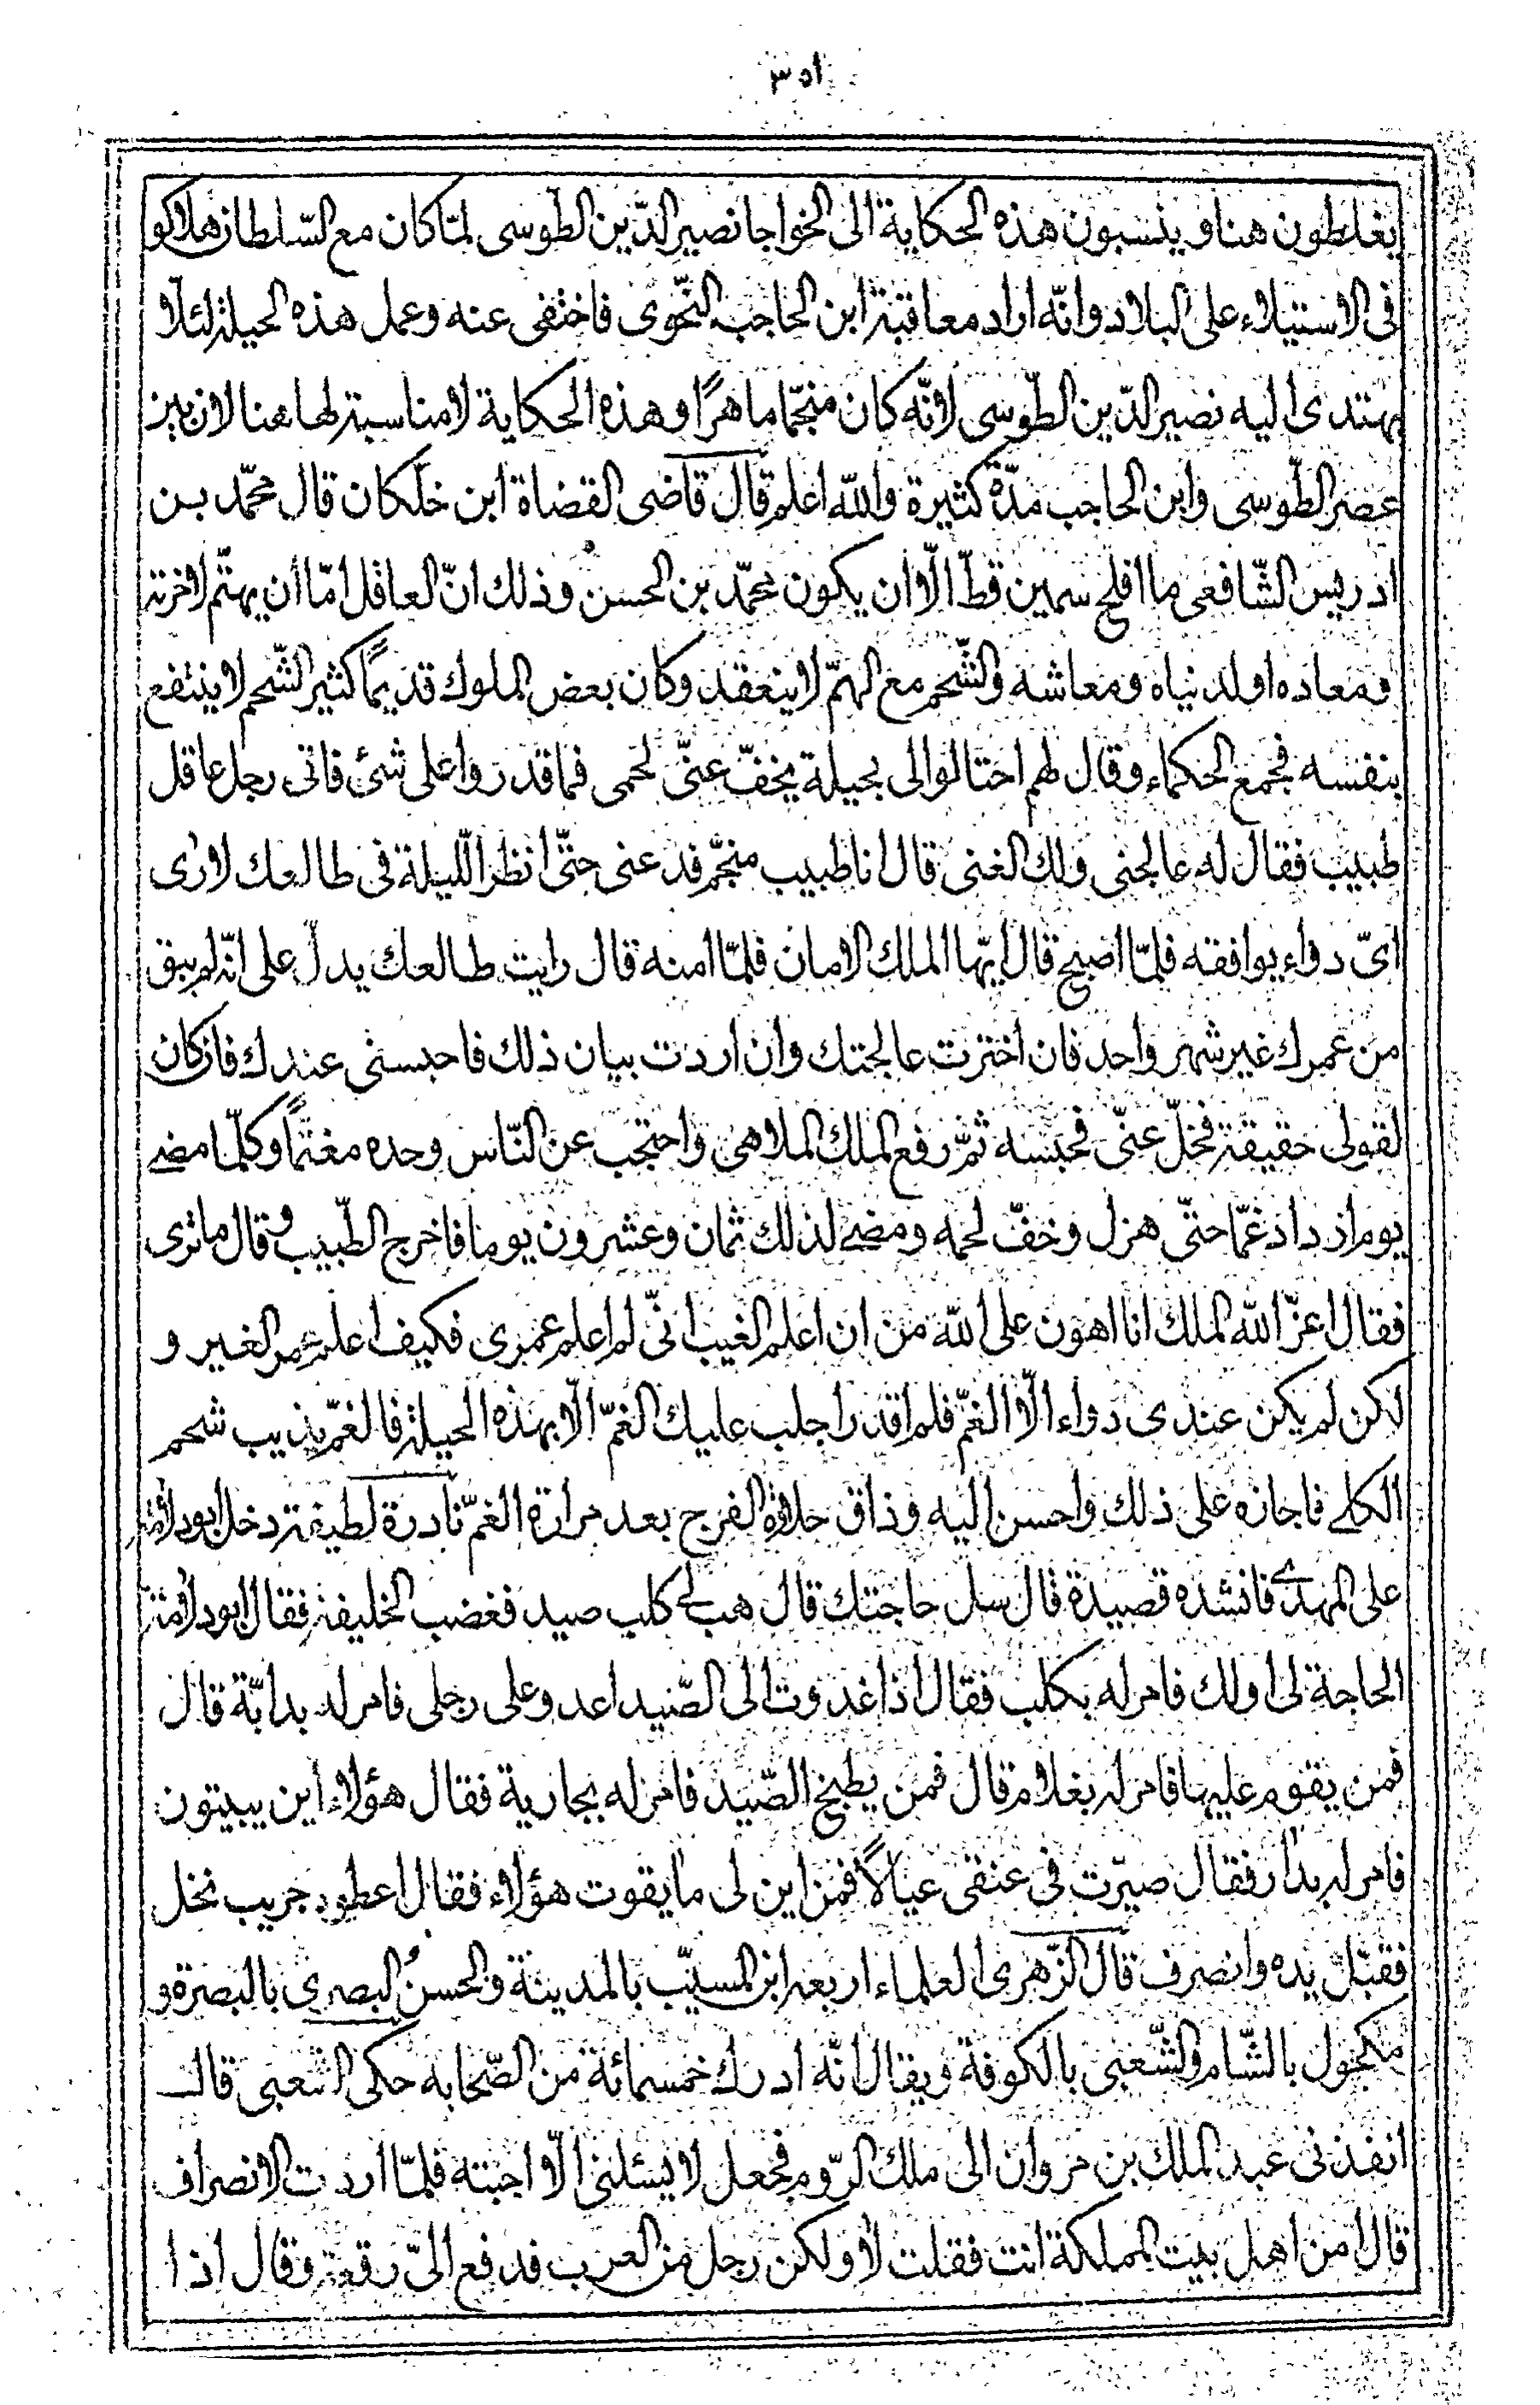 ٣٥١
يغلطون هنا وينسبون هذه الحكاية الى الخواجا نصير الدّين الطّوسى لمّا كان مع السّلطان هلاكو
فى الاستيلاء على البلاد وانّه اراد معاقبة ابن الحاجب النّحوى فاختفى عنه وعمل هذه الحيلة لئلّا
يهتدى اليه نصير الدّين الطّوسى لانّه كان منجّما ماهرًا وهذه الحكاية لا مناسبة لها هنا لان بين
عصر الطّوسى وابن الحاجب مدّة كثيرة والله اعلم قال قاضى القضاة ابن خلّكان قال محمّد بن
ادريس الشّافعى ما افلح سمين قطّ الّا ان يكون محمّد بن الحسن وذلك انّ العاقل امّا أن يهتّم لاخرته
ومعاده او لدنياه ومعاشه والشّحم مع الهمّ لا ينعقد وكان بعض الملوك قديمًا كثير الشّحم لا ينتفع
بنفسه فجمع الحكماء وقال لهم احتالوا لى بحيلة يخفّ عنّى لحمى فما قدروا على شئ فاتى رجل عاقل
طبيب فقال له عالجنى ولك الغنى قال انا طبيب منجّم فدعنى حتّى انظر اللّيلة فى طالعك لارى
اىّ دواء يوافقه فلمّا اصبح قال ايّها الملك الامان فلمّا امنه قال رايت طالعك يدلّ على انّه لم يبق
من عمرك غير شهر واحد فان اخترت عالجتك وان اردت بيان ذلك فاحبسنى عندك فان كان
لقولى حقيقة فخلّ عنّى فحبسه ثمّ رفع الملك الملاهى واحتجب عن النّاس وحده مغتمًّا وكلّما مضى
يوم ازداد غمّا حتّى هزل وخفّ لحمه ومضى لذلك ثمان وعشرون يوما فاخرج الطّبيب وقال ما ترى
فقال اعزّ الله الملك انا اهون على الله من ان اعلم الغيب انّى لم اعلم عمرى فكيف اعلم عمر الغير و
لكن لم يكن عندى دواء الّا الغمّ فلم اقدر اجلب عليك الغمّ الّا بهذه الحيلة فالغمّ يذيب شحم
الكلى فاجازه على ذلك واحسن اليه وذاق حلاوة الفرج بعد مرارة الغمّ نادرة لطيفة دخل ابو دلامة
على المهدى فانشده قصيدة قال سل حاجتك قال هب لى كلب صيد فغضب الخليفة فقال ابو دلامة
الحاجة لى او لك فامر له بكلب فقال اذا غدوت الى الصّيد اعدو على رجلى فامر له بدابّة قال
فمن يقوم عليها فامر له بغلام قال فمن يطبخ الصّيد فامر له بجارية فقال هؤلاء اين يبيتون
فامر له بدار فقال صيّرت فى عنقى عيالًا فمن اين لى ما يقوت هؤلاء فقال اعطوه جريب نخل
فقبّل يده وانصرف قال الزّهرى العلماء اربعة ابن المسيّب بالمدينة والحسن البصرى بالبصرة و
مكحول بالشّام والشّعبى بالكوفة ويقال انّه ادرك خمسمائة من الصّحابه حكى الشّعبى قال
انفذنى عبد الملك بن مروان الى ملك الرّوم فجعل لا يسئلنى الّا اجبته فلمّا اردت الانصراف
قال امن اهل بيت المملكة انت فقلت لا ولكن رجل من العرب فدفع الىّ رقعة وقال اذا